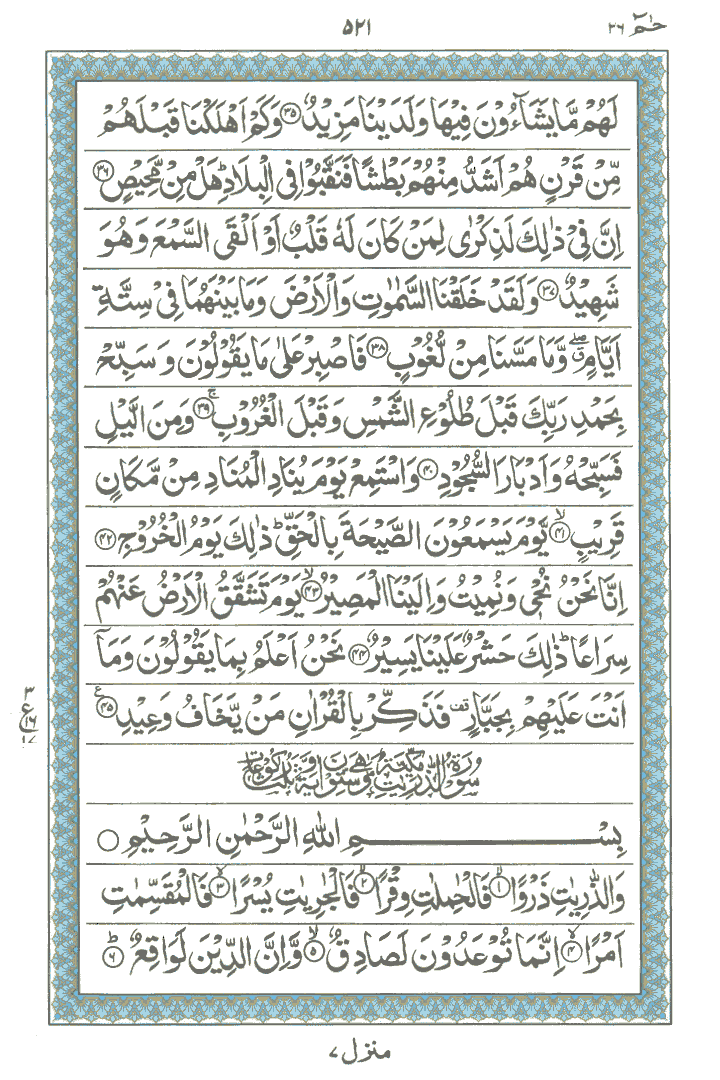 حٰمٓ ٢٦
٥٢١
لَهُمْ مَّا يَشَآءُوْنَ فِيْهَا وَلَدَيْنَا مَزِيْدٌ ﴿٣٥﴾ وَكَمْ اَهْلَكْنَا قَبْلَهُمْ
مِّنْ قَرْنٍ هُمْ اَشَدُّ مِنْهُمْ بَطْشًا فَنَقَّبُوْا فِى الْبِلَادِ ؕ هَلْ مِنْ مَّحِيْصٍ ﴿٣٦﴾
اِنَّ فِيْ ذٰلِكَ لَذِكْرٰى لِمَنْ كَانَ لَهٗ قَلْبٌ اَوْ اَلْقَى السَّمْعَ وَهُوَ
شَهِيْدٌ ﴿٣٧﴾ وَلَقَدْ خَلَقْنَا السَّمٰوٰتِ وَالْاَرْضَ وَمَا بَيْنَهُمَا فِيْ سِتَّةِ
اَيَّامٍ ۖق وَّمَا مَسَّنَا مِنْ لُّغُوْبٍ ﴿٣٨﴾ فَاصْبِرْ عَلٰى مَا يَقُوْلُوْنَ وَ سَبِّحْ
بِحَمْدِ رَبِّكَ قَبْلَ طُلُوْعِ الشَّمْسِ وَقَبْلَ الْغُرُوْبِ ۚ﴿٣٩﴾ وَمِنَ الَّيْلِ
فَسَبِّحْهُ وَاَدْبَارَ السُّجُوْدِ ﴿٤٠﴾ وَاسْتَمِعْ يَوْمَ يُنَادِ الْمُنَادِ مِنْ مَّكَانٍ
قَرِيْبٍ ۙ﴿٤١﴾ يَّوْمَ يَسْمَعُوْنَ الصَّيْحَةَ بِالْحَقِّ ؕ ذٰلِكَ يَوْمُ الْخُرُوْجِ ﴿٤٢﴾
اِنَّا نَحْنُ نُحْيٖ وَنُمِيْتُ وَاِلَيْنَا الْمَصِيْرُ ۙ﴿٤٣﴾ يَوْمَ تَشَقَّقُ الْاَرْضُ عَنْهُمْ
سِرَاعًا ؕ ذٰلِكَ حَشْرٌ عَلَيْنَا يَسِيْرٌ ﴿٤٤﴾ نَحْنُ اَعْلَمُ بِمَا يَقُوْلُوْنَ وَمَآ
اَنْتَ عَلَيْهِمْ بِجَبَّارٍ قف فَذَكِّرْ بِالْقُرْاٰنِ مَنْ يَّخَافُ وَعِيْدِ ﴿٤٥﴾ ع
٣
ع ١٦
١٧
سُوْرَةُ الذّٰرِيٰتِ مَكِّيَّةٌ وَّهِيَ سِتُّوْنَ اٰيَةً وَّثَلٰثُ رُكُوْعَاتٍ
بِسْمِ اللهِ الرَّحْمٰنِ الرَّحِيْمِ
وَالذّٰرِيٰتِ ذَرْوًا ۙ﴿١﴾ فَالْحٰمِلٰتِ وِقْرًا ۙ﴿٢﴾ فَالْجٰرِيٰتِ يُسْرًا ۙ﴿٣﴾ فَالْمُقَسِّمٰتِ
اَمْرًا ۙ﴿٤﴾ اِنَّمَا تُوْعَدُوْنَ لَصَادِقٌ ۙ﴿٥﴾ وَّاِنَّ الدِّيْنَ لَوَاقِعٌ ؕ﴿٦﴾
منزل ٧